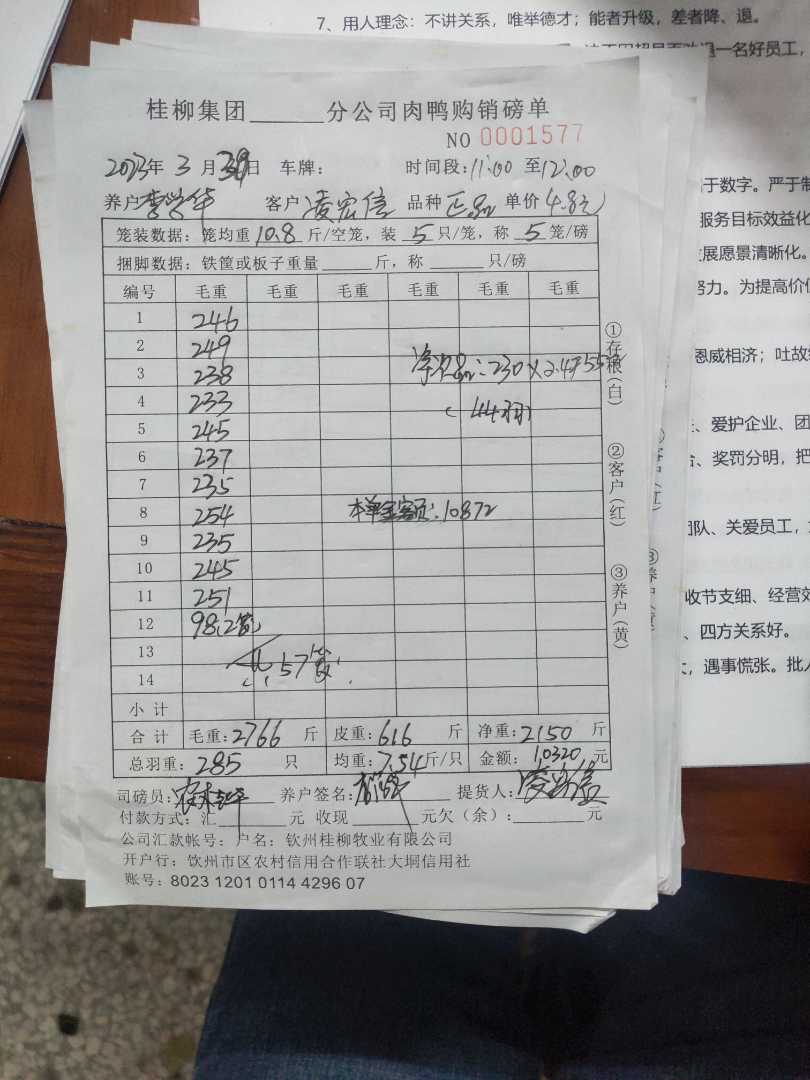 7、用人理念：不讲关系，唯举德才；能者升级，差者降、退。
一名好员工，
桂柳集团______分公司肉鸭购销磅单
NO 0001577
2023年 3 月 日 车牌： 时间段：11:00 至12:00
养户李学华 客户凌宏信 品种正品 单价4.8元
笼装数据：笼均重10.8斤/空笼，装 5 只/笼，称 5 笼/磅
捆脚数据：铁筐或板子重量______斤，称______只/磅
编号 毛重 毛重 毛重 毛重 毛重 毛重
1 246
2 249
3 238
4 233
5 245
6 237
7 235
8 254
9 235
10 245
11 251
12 98(2笼)
13
14
57笼
净次品：230×2.4
(44羽)
本单金额：10872
小计
合计 毛重：2766 斤 皮重：616 斤 净重：2150 斤
总羽重：285 只 均重：7.54斤/只 金额：10320元
司磅员： 养户签名： 提货人：凌宏信
付款方式：汇______元 收现______元欠（余）：______元
公司汇款帐号：户名：钦州桂柳牧业有限公司
开户行：钦州市区农村信用合作联社大垌信用社
账号：8023 1201 0114 4296 07
①存根（白）
②客户（红）
③养户（黄）
于数字。严于制
服务目标效益化
展愿景清晰化。
努力。为提高价值
恩威相济；吐故
、爱护企业、团
、奖罚分明，把
团队、关爱员工，
收节支细、经营效
、四方关系好。
，遇事慌张。批人